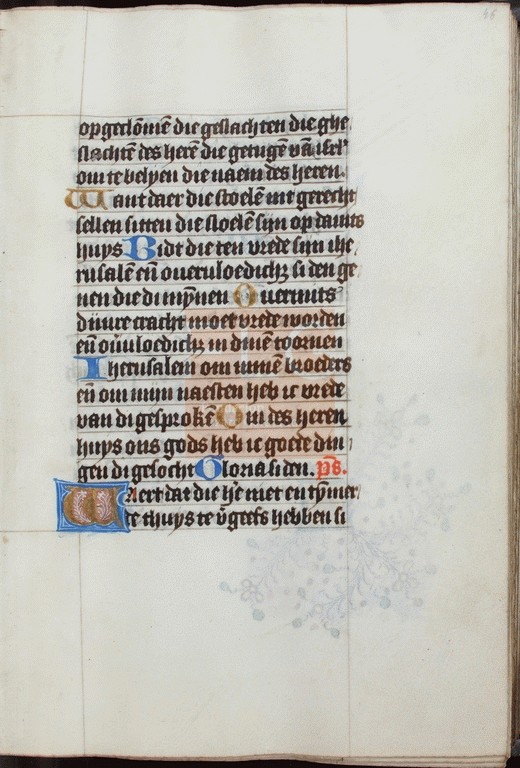 opgeclōmē die geslachten die ghe
slachtē des herē die getugē vā isrl'
om te belyen die naem des heren.
Want daer die stoelē mt gerecht
sellen sitten die stoelē sijn op dauits
huys Bidt die ten vrede sijn ihe
rusalē eñ oueruloedichz si den ge
nen die di mȳnen Ouermits
dijnre cracht moet vrede worden
eñ oũuloedichz in dinē toornen
Iherusalem om minen broeders
eñ om mijn naesten heb ic vrede
van di gesprokē Om des heren
huys ons gods heb ic goede din
gen di gesocht Gloria si den. ps.
Waert dat die hē niet en tȳmer
te thuys te v̄geefs hebben si